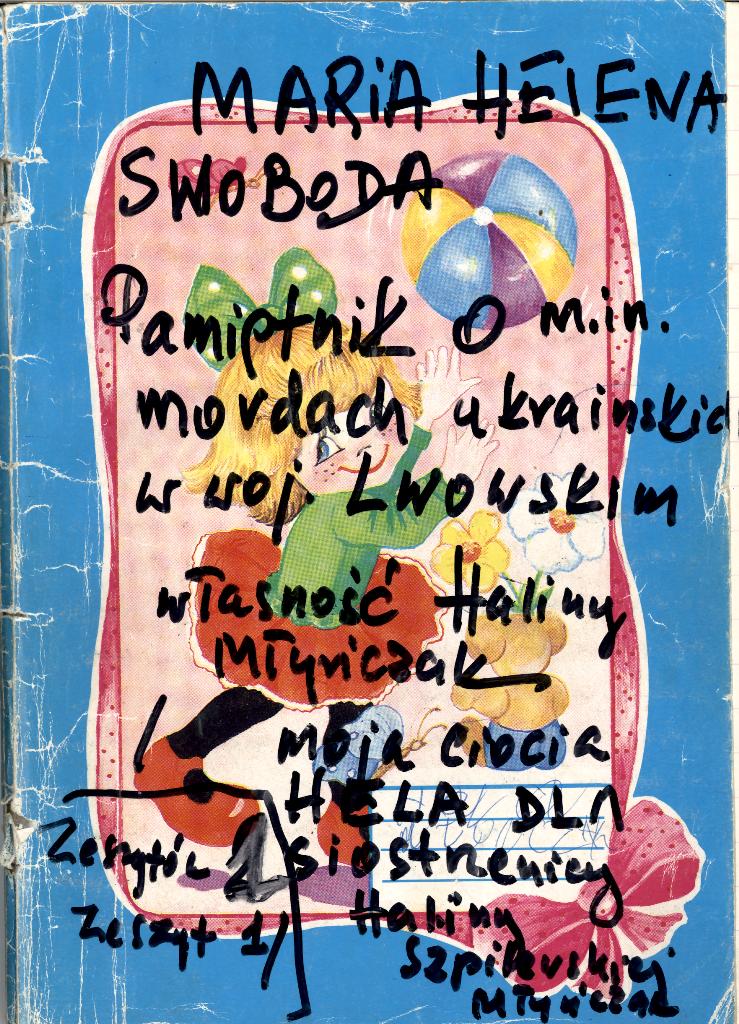 MARIA HELENA
SWOBODA
Pamiętnik o m.in.
mordach ukraińskich
w woj. LWOWSKIM
własność Haliny
Młyńczak
moja ciocia
HELA DLA
siostrzenicy
Haliny
Szpilewskiej
Młyńczak
Zeszytów 2
Zeszyt 1/